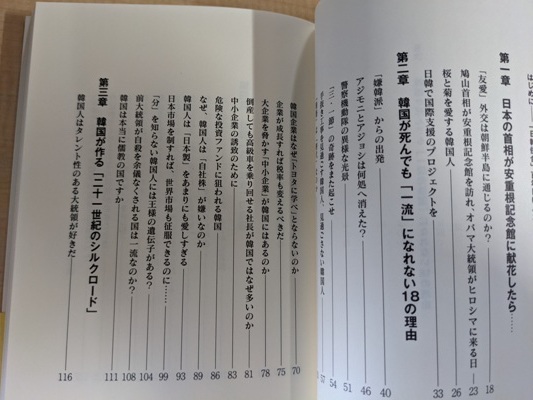 はじめに
第一章 日本の首相が安重根記念館に献花したら……
「友愛」外交は朝鮮半島に通じるのか? 18
鳩山首相が安重根記念館を訪れ、オバマ大統領がヒロシマに来る日 23
桜と菊を愛する韓国人 26
日韓で国際支援のプロジェクトを 33
第二章 韓国が死んでも「一流」になれない18の理由
「嫌韓派」からの出発 40
アジモニとアジョシは何処へ消えた? 46
警察機動隊の異様な光景 51
「三・一節」の奇跡をまた起こせ 54
57
韓国企業はなぜ「トヨタに学べ」とならないのか 70
企業が成長すれば税率も変えるべきだ 75
大企業を脅かす「中小企業」が韓国にはあるのか 78
倒産しても高級車を乗り回せる社長が韓国ではなぜ多いのか 81
中小企業の誘致のために 83
危険な投資ファンドに狙われる韓国 86
なぜ、韓国人は「自社株」が嫌いなのか 89
韓国人は「日本製」をあまりにも愛しすぎる 93
日本市場を制すれば、世界市場も征服できるのに…… 99
「分」を知らない韓国人には王様の遺伝子がある? 104
前大統領が自殺を余儀なくされる国は一流なのか? 108
韓国は本当に儒教の国ですか 111
第三章 韓国が作る「二十一世紀のシルクロード」
韓国人はタレント性のある大統領が好きだ 116